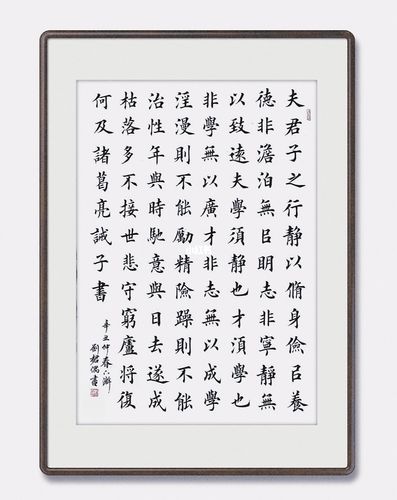 夫君子之行静以脩身儉㠯養
德非澹泊無㠯明志非寧静無
以致遠夫學須静也才須學也
非學無以廣才非志無以成學
淫漫則不能勵精險躁則不能
治性年與時馳意與日去遂成
枯落多不接世悲守窮廬將復
何及諸葛亮誡子書
辛丑仲春
劉書